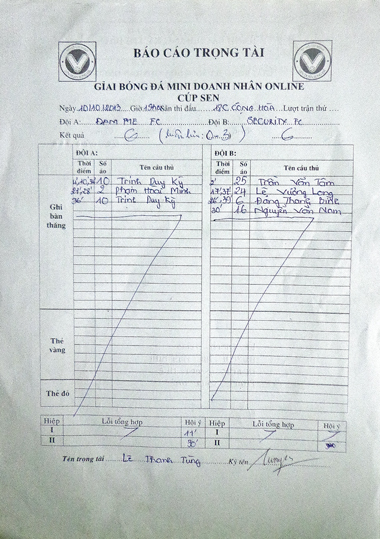 BÁO CÁO TRỌNG TÀI
GIẢI BÓNG ĐÁ MINI DOANH NHÂN ONLINE
CÚP SEN
Ngày 10/10/2013 Giờ Sân thi đấu 18C CỘNG HÒA Lượt trận thứ
Đội A: ĐAM MÊ FC Đội B: SECURITY FC
Kết quả 6 6
ĐỘI A: ĐỘI B:
Thời điểm Số áo Tên cầu thủ Thời điểm Số áo Tên cầu thủ
Ghi bàn thắng
10 Trình Duy Kỳ 25 Trần Văn Tâm
2 Phạm Hoài Minh 24 Lê Vương Long
36' 10 Trình Duy Kỳ 6 Đặng Thanh Bình
30' 16 Nguyễn Văn Nam
Thẻ vàng
Thẻ đỏ
Hiệp Lỗi tổng hợp Hội ý Hiệp Lỗi tổng hợp Hội ý
I 11' I
II 30' II
Tên trọng tài Lê Thanh Tùng Ký tên